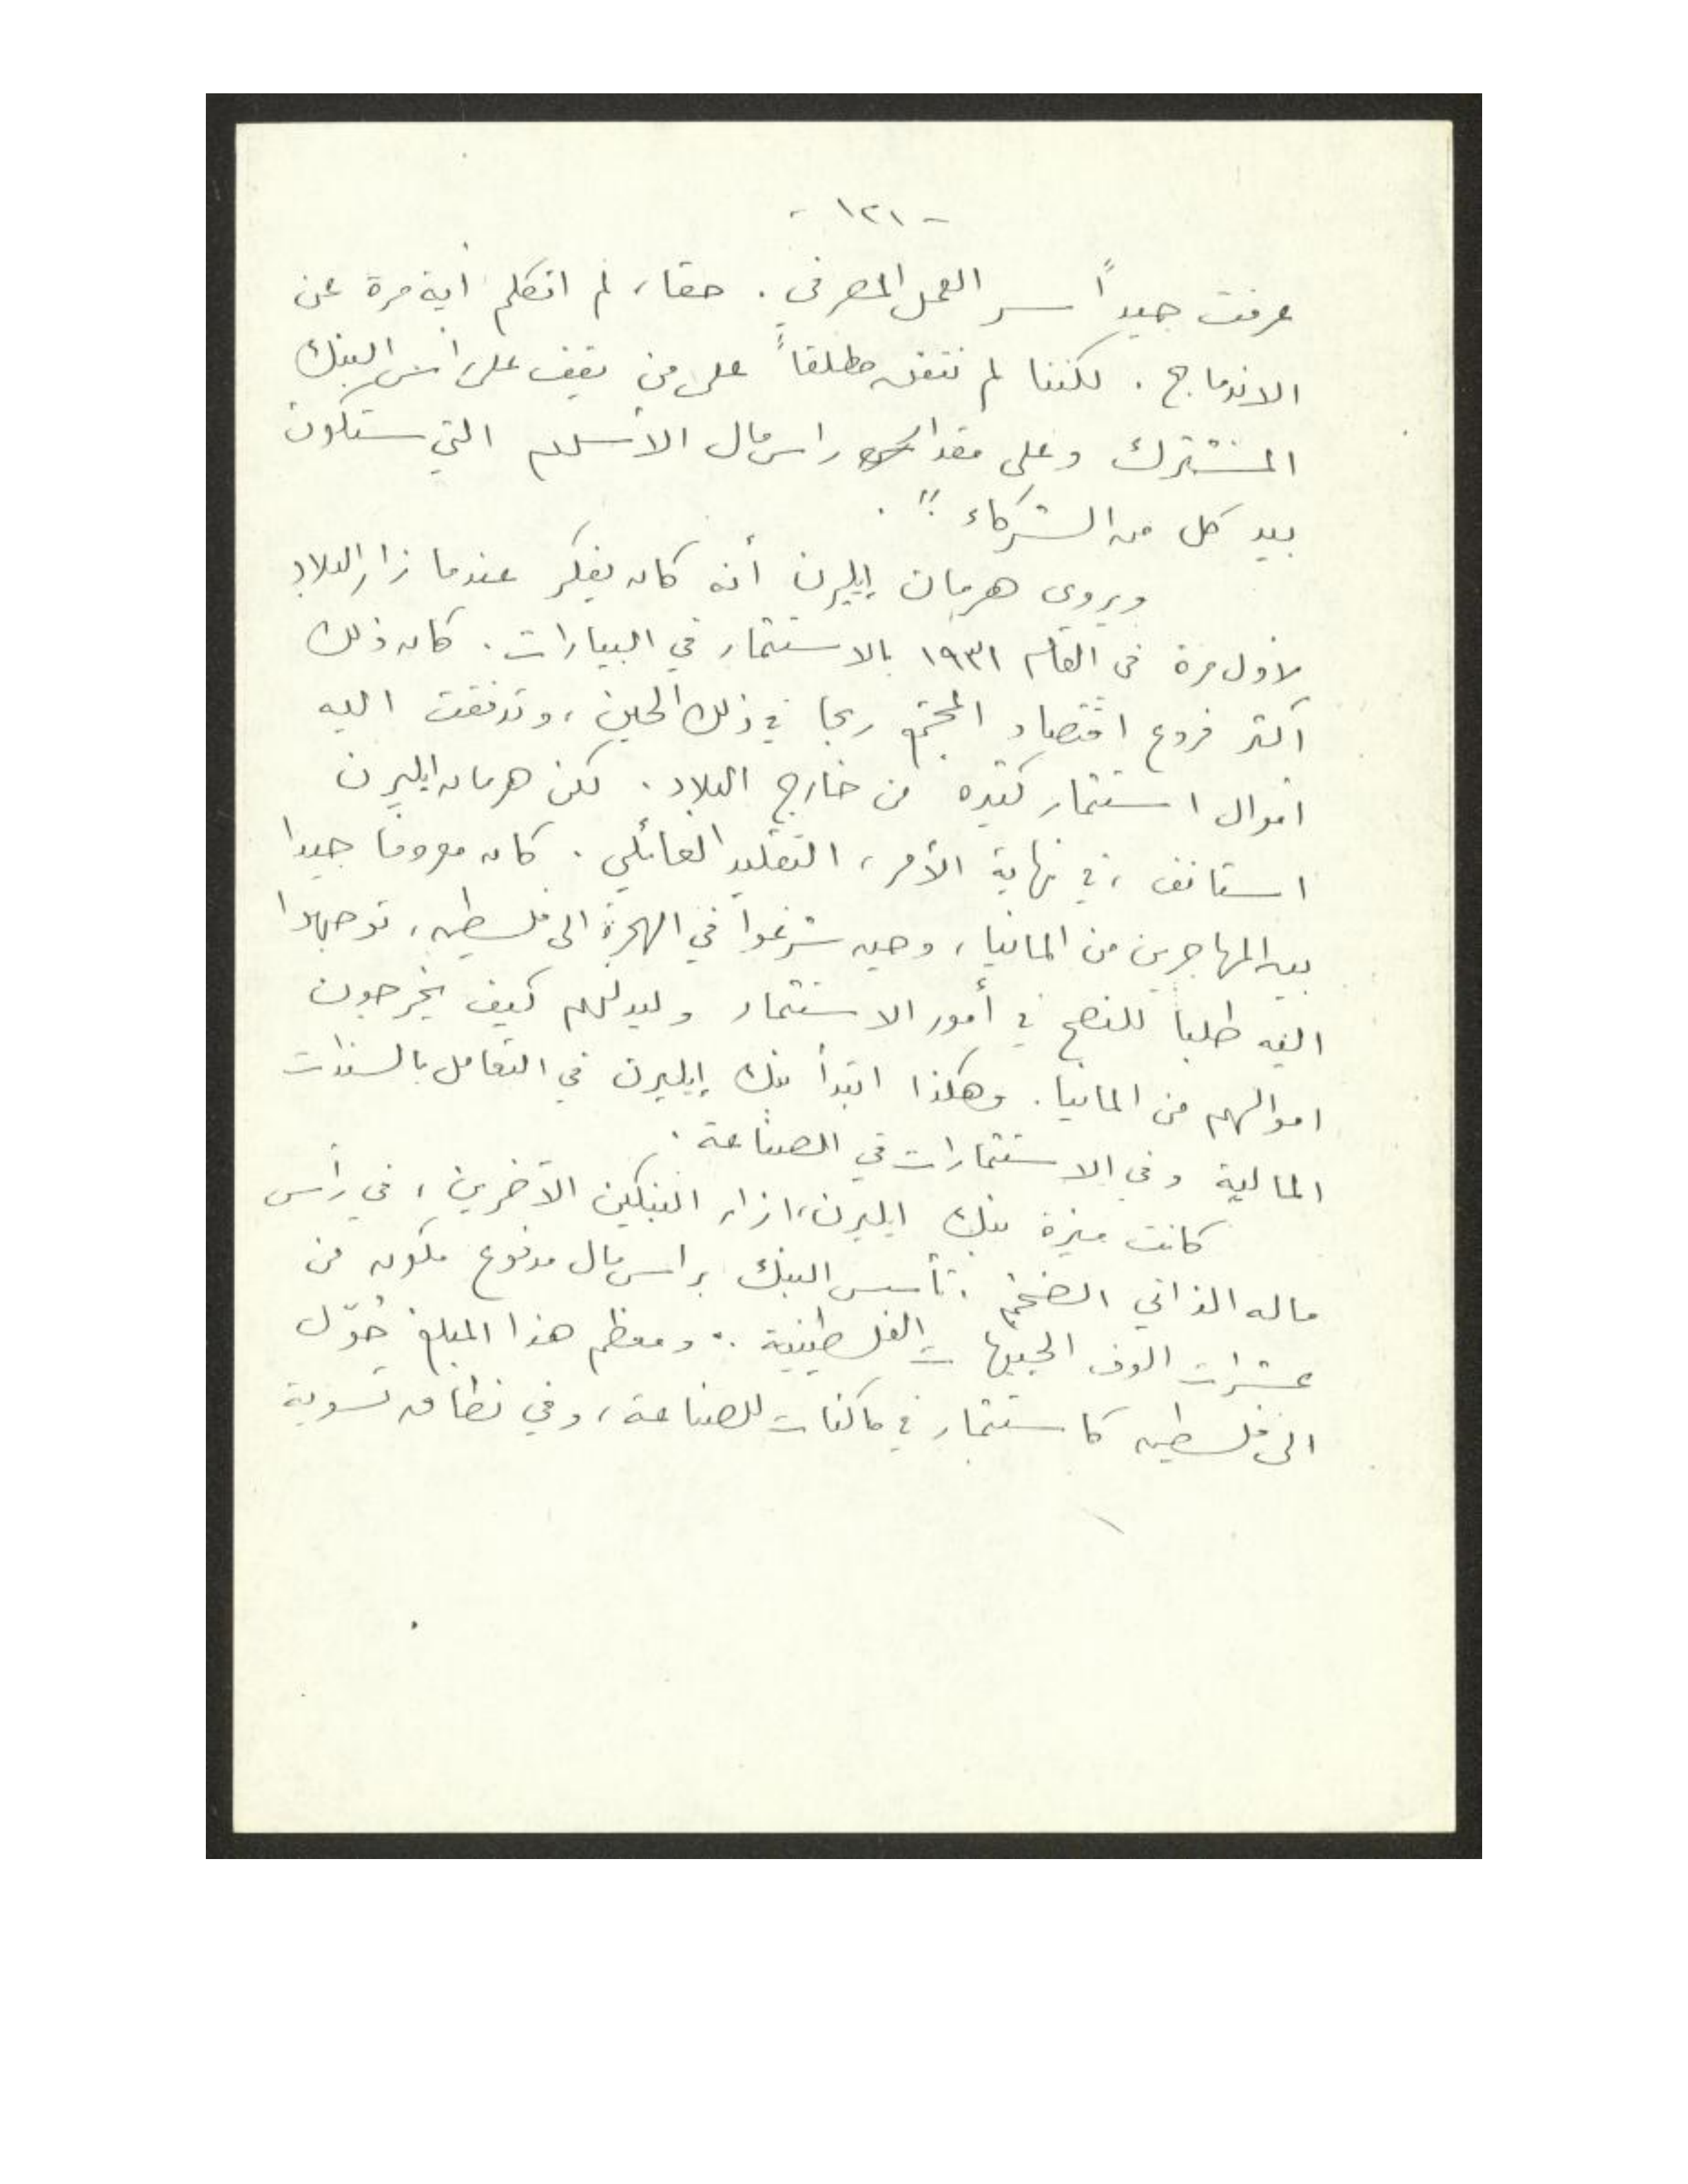 - ١٢١ -
عرفت جيداً سر العمل المصرفي. حقا، لم اتكلم أية مرة عن
الاندماج. لكننا لم نتفق مطلقاً على من يقف على رأس البنك
المشترك وعلى مقدار راس مال الأسهم التي ستكون
بيد كل من الشركاء".
ويروي هرمان إيليرن أنه كان يفكر عندما زار البلاد
لأول مرة في العام ١٩٣١ بالاستثمار في البيارات. كان ذلك
أكثر فروع اقتصاد المجتمع ربحا في ذلك الحين، وتدفقت اليه
اموال استثمار كثيرة من خارج البلاد. لكن هرمان ايليرن
استانف، في نهاية الأمر، التقليد العائلي. كان معروفا جيدا
بين المهاجرين من المانيا، وحين شرعوا في الهجرة الى فلسطين، توجهوا
اليه طلبا للنصح في أمور الاستثمار وليدلهم كيف يخرجون
اموالهم من المانيا. وهكذا ابتدأ بنك إيليرن في التعامل بالسندات
المالية وفي الاستثمارات في الصناعة.
كانت ميزة بنك ايليرن، ازاء البنكين الآخرين، في رأس
ماله الذاتي الضخم. تأسس البنك براس مال مدفوع مكون من
عشرات الوف الجنيهات الفلسطينية. ومعظم هذا المبلغ حُوّل
الى فلسطين كاستثمار في ماكنات للصناعة، وفي نطاق تسوية